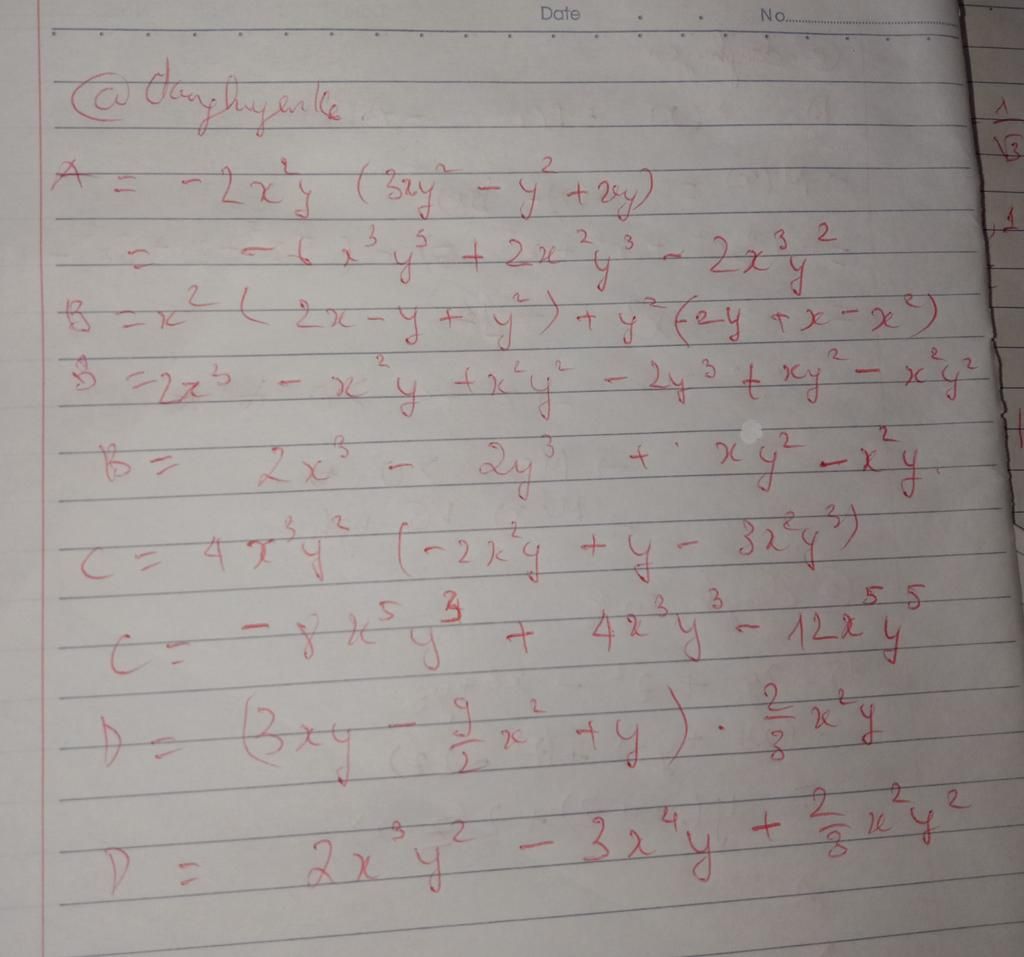 Date No.
@danghuyenk6
A = - 2x²y (3xy² - y² + 2xy)
= - 6x³y³ + 2x²y³ - 2x³y²
B = x² ( 2x - y + y² ) + y² (-2y + x - x²)
B = 2x³ - x²y + x²y² - 2y³ + xy² - x²y²
B = 2x³ - 2y³ + xy² - x²y
C = 4x³y² (-2x²y + y - 3x²y³)
C = - 8x⁵y³ + 4x³y³ - 12x⁵y⁵
D = (3xy - 9/2 x² + y) . 2/3 x²y
D = 2x³y² - 3x⁴y + 2/3 x²y²